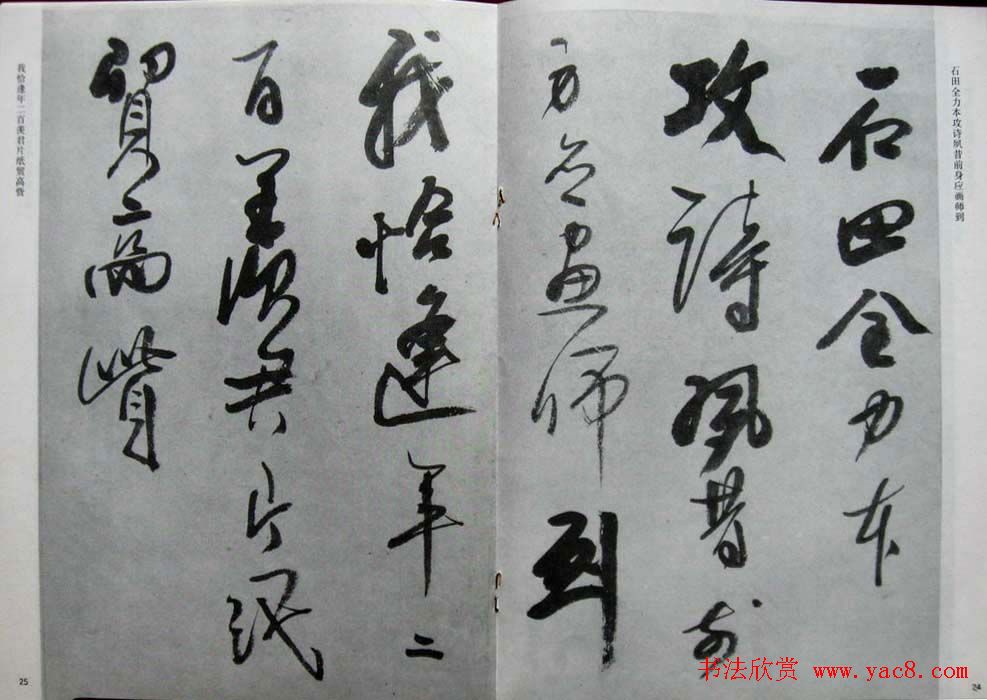 石田全力本攻诗夙昔前身应画师到
石田全力本
攻詩夙昔前
身應畫師到
我恰逢年二
百羨君片紙
貿高貲
我恰逢年二百羡君片纸贸高赀
25
24
书法欣赏 www.yac8.com